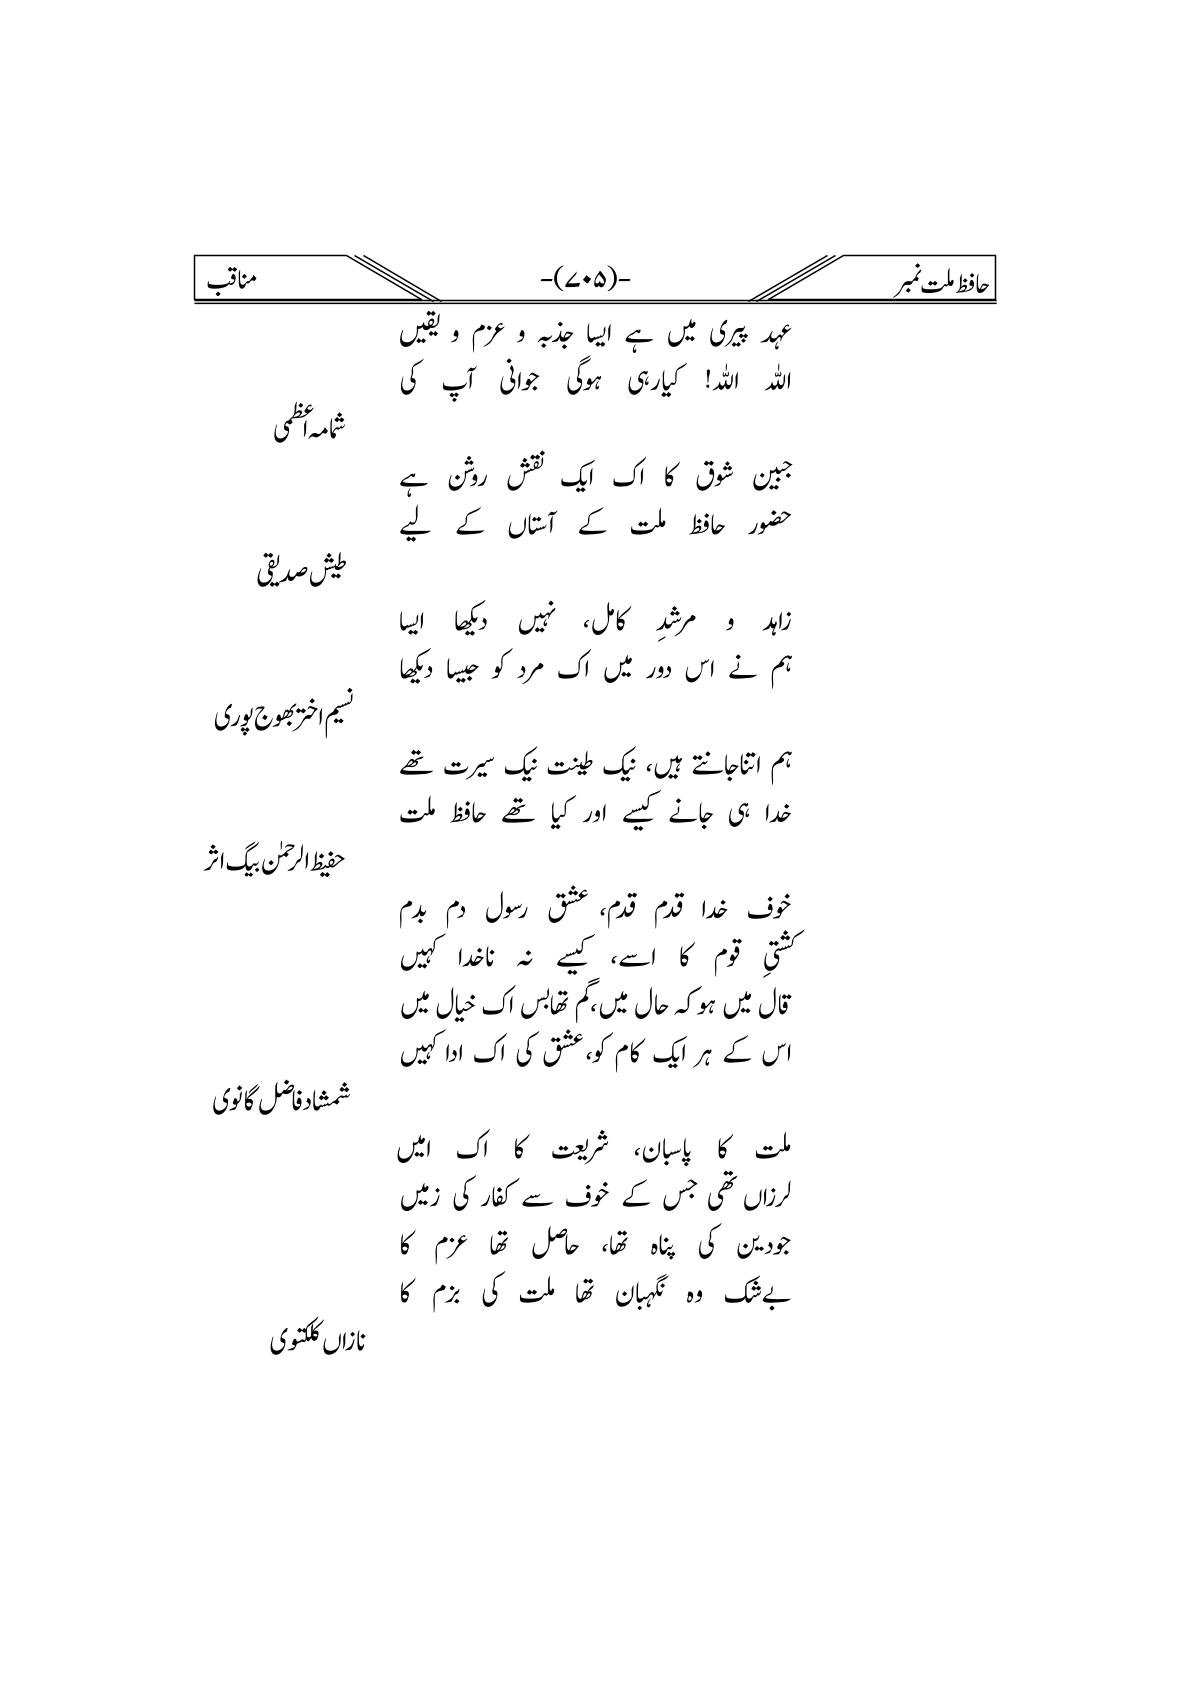 حافظ ملت نمبر -(۷۰۵)- مناقب
عہد پیری میں ہے ایسا جذبہ و عزم و یقیں
اللہ اللہ! کیارہی ہوگی جوانی آپ کی
شمامہ اعظمی
جبین شوق کا اک ایک نقش روشن ہے
حضور حافظ ملت کے آستاں کے لیے
طیش صدیقی
زاہد و مرشدِ کامل، نہیں دیکھا ایسا
ہم نے اس دور میں اک مرد کو جیسا دیکھا
نسیم اختر بھوج پوری
ہم اتناجانتے ہیں، نیک طینت نیک سیرت تھے
خدا ہی جانے کیسے اور کیا تھے حافظ ملت
حفیظ الرحمٰن بیگ اثر
خوف خدا قدم قدم، عشق رسول دم بدم
کشتیِ قوم کا اسے، کیسے نہ ناخدا کہیں
قال میں ہو کہ حال میں،گم تھابس اک خیال میں
اس کے ہر ایک کام کو،عشق کی اک ادا کہیں
شمشاد فاضل گانوی
ملت کا پاسبان، شریعت کا اک امیں
لرزاں تھی جس کے خوف سے کفار کی زمیں
جودین کی پناہ تھا، حاصل تھا عزم کا
بےشک وہ نگہبان تھا ملت کی بزم کا
نازاں کلکتوی